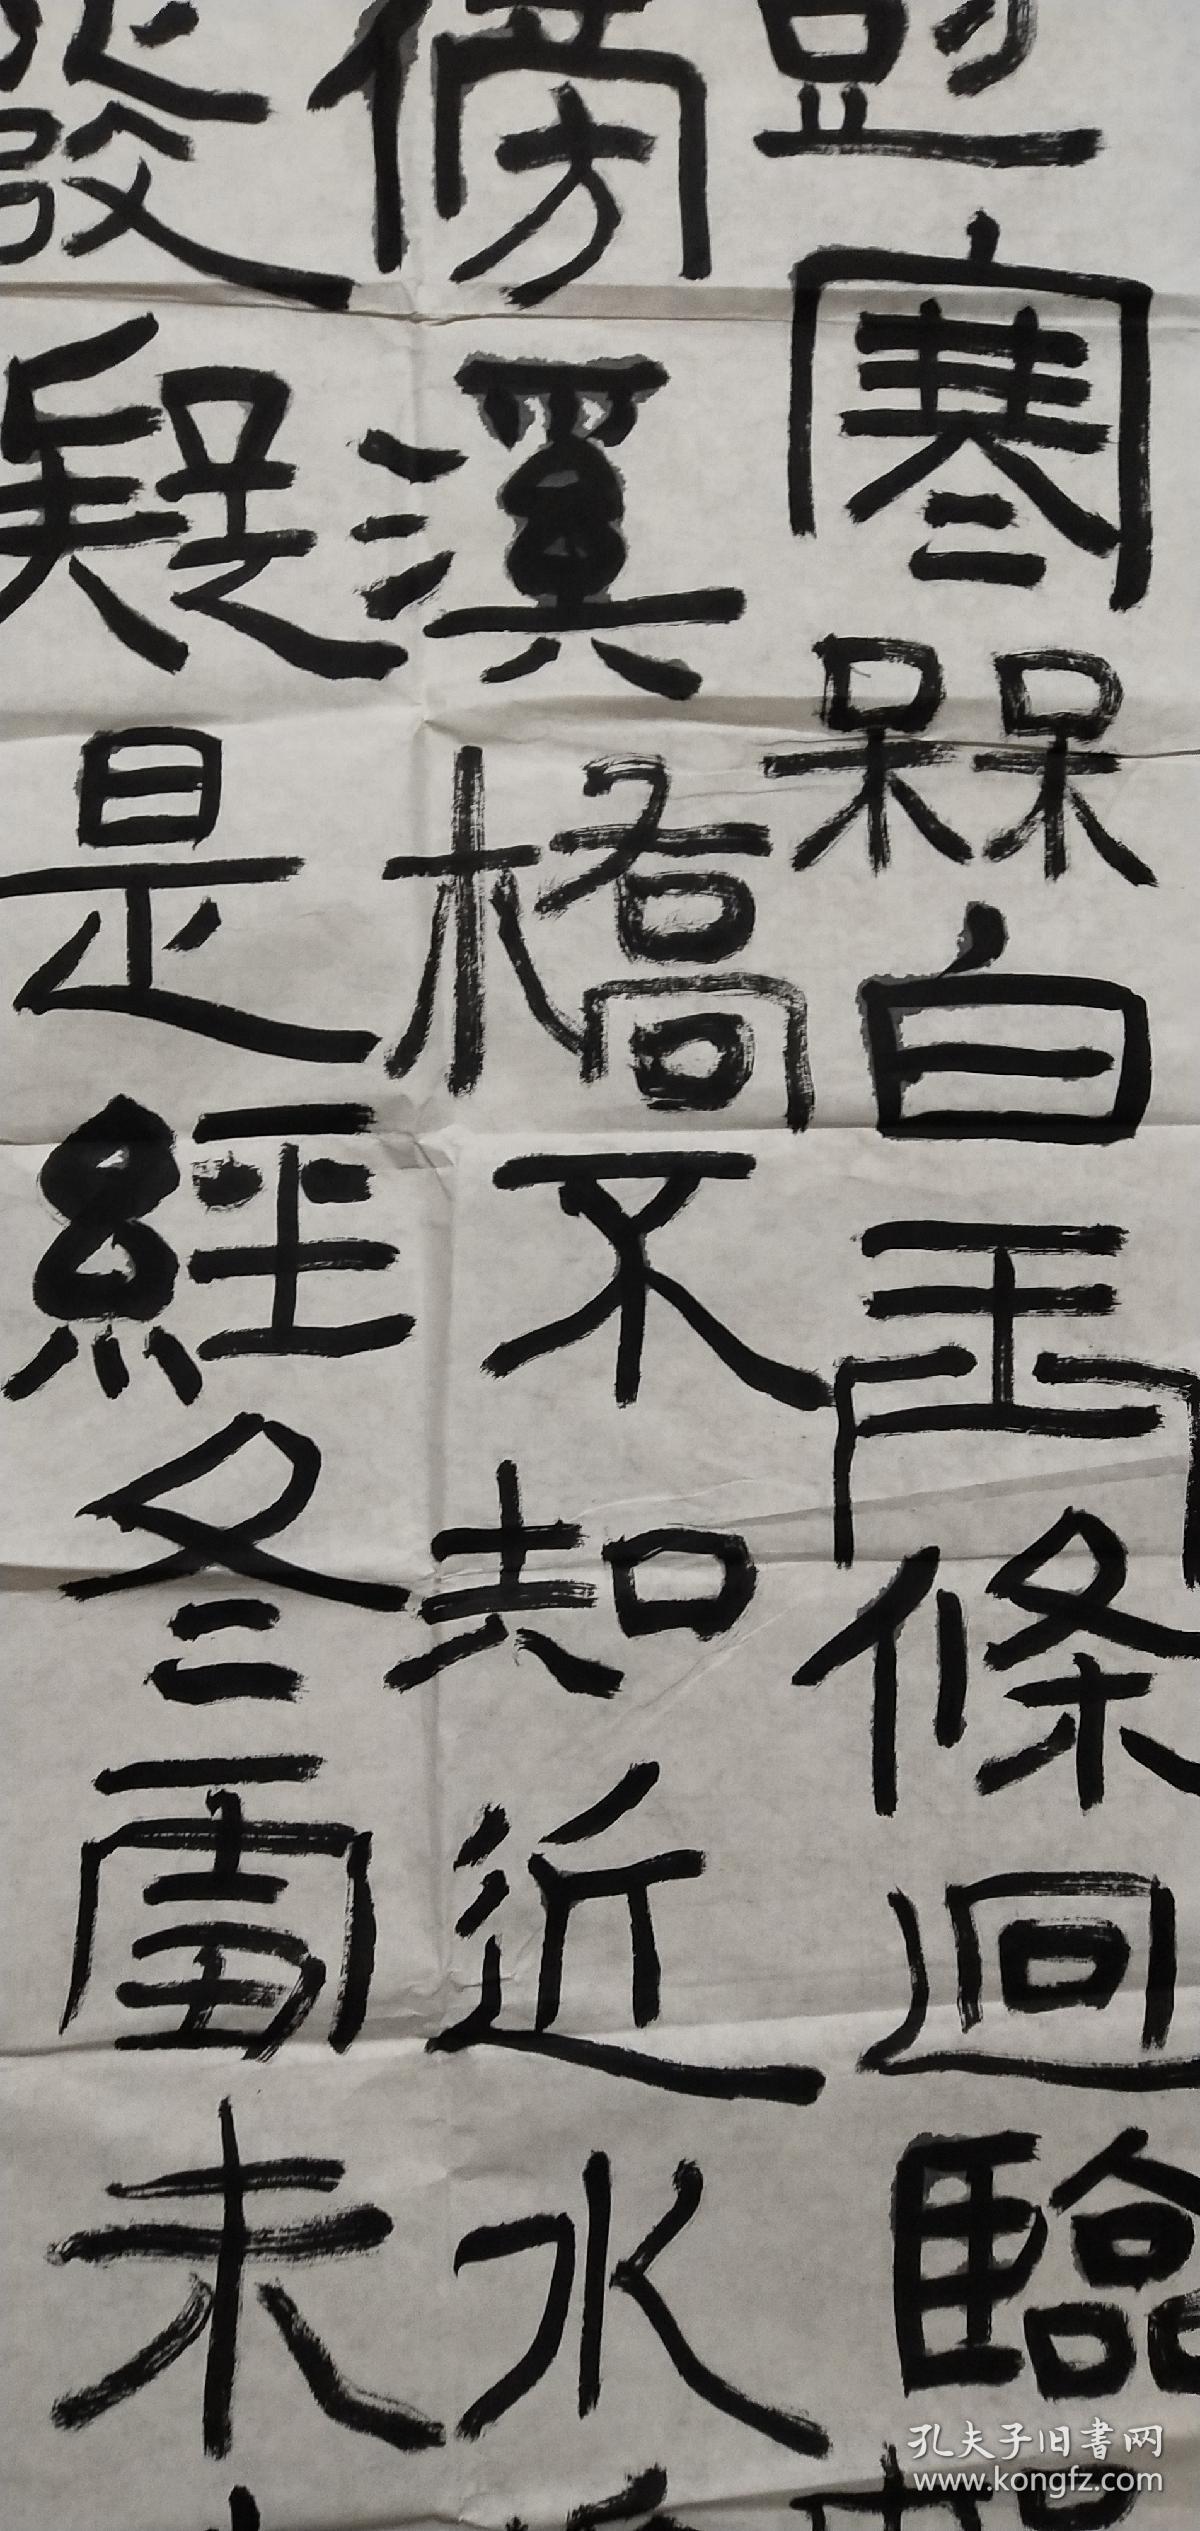 寒槑白玉條迥臨
傍溪橋不知近水
發疑是經冬雪未
孔夫子旧书网
www.kongfz.com